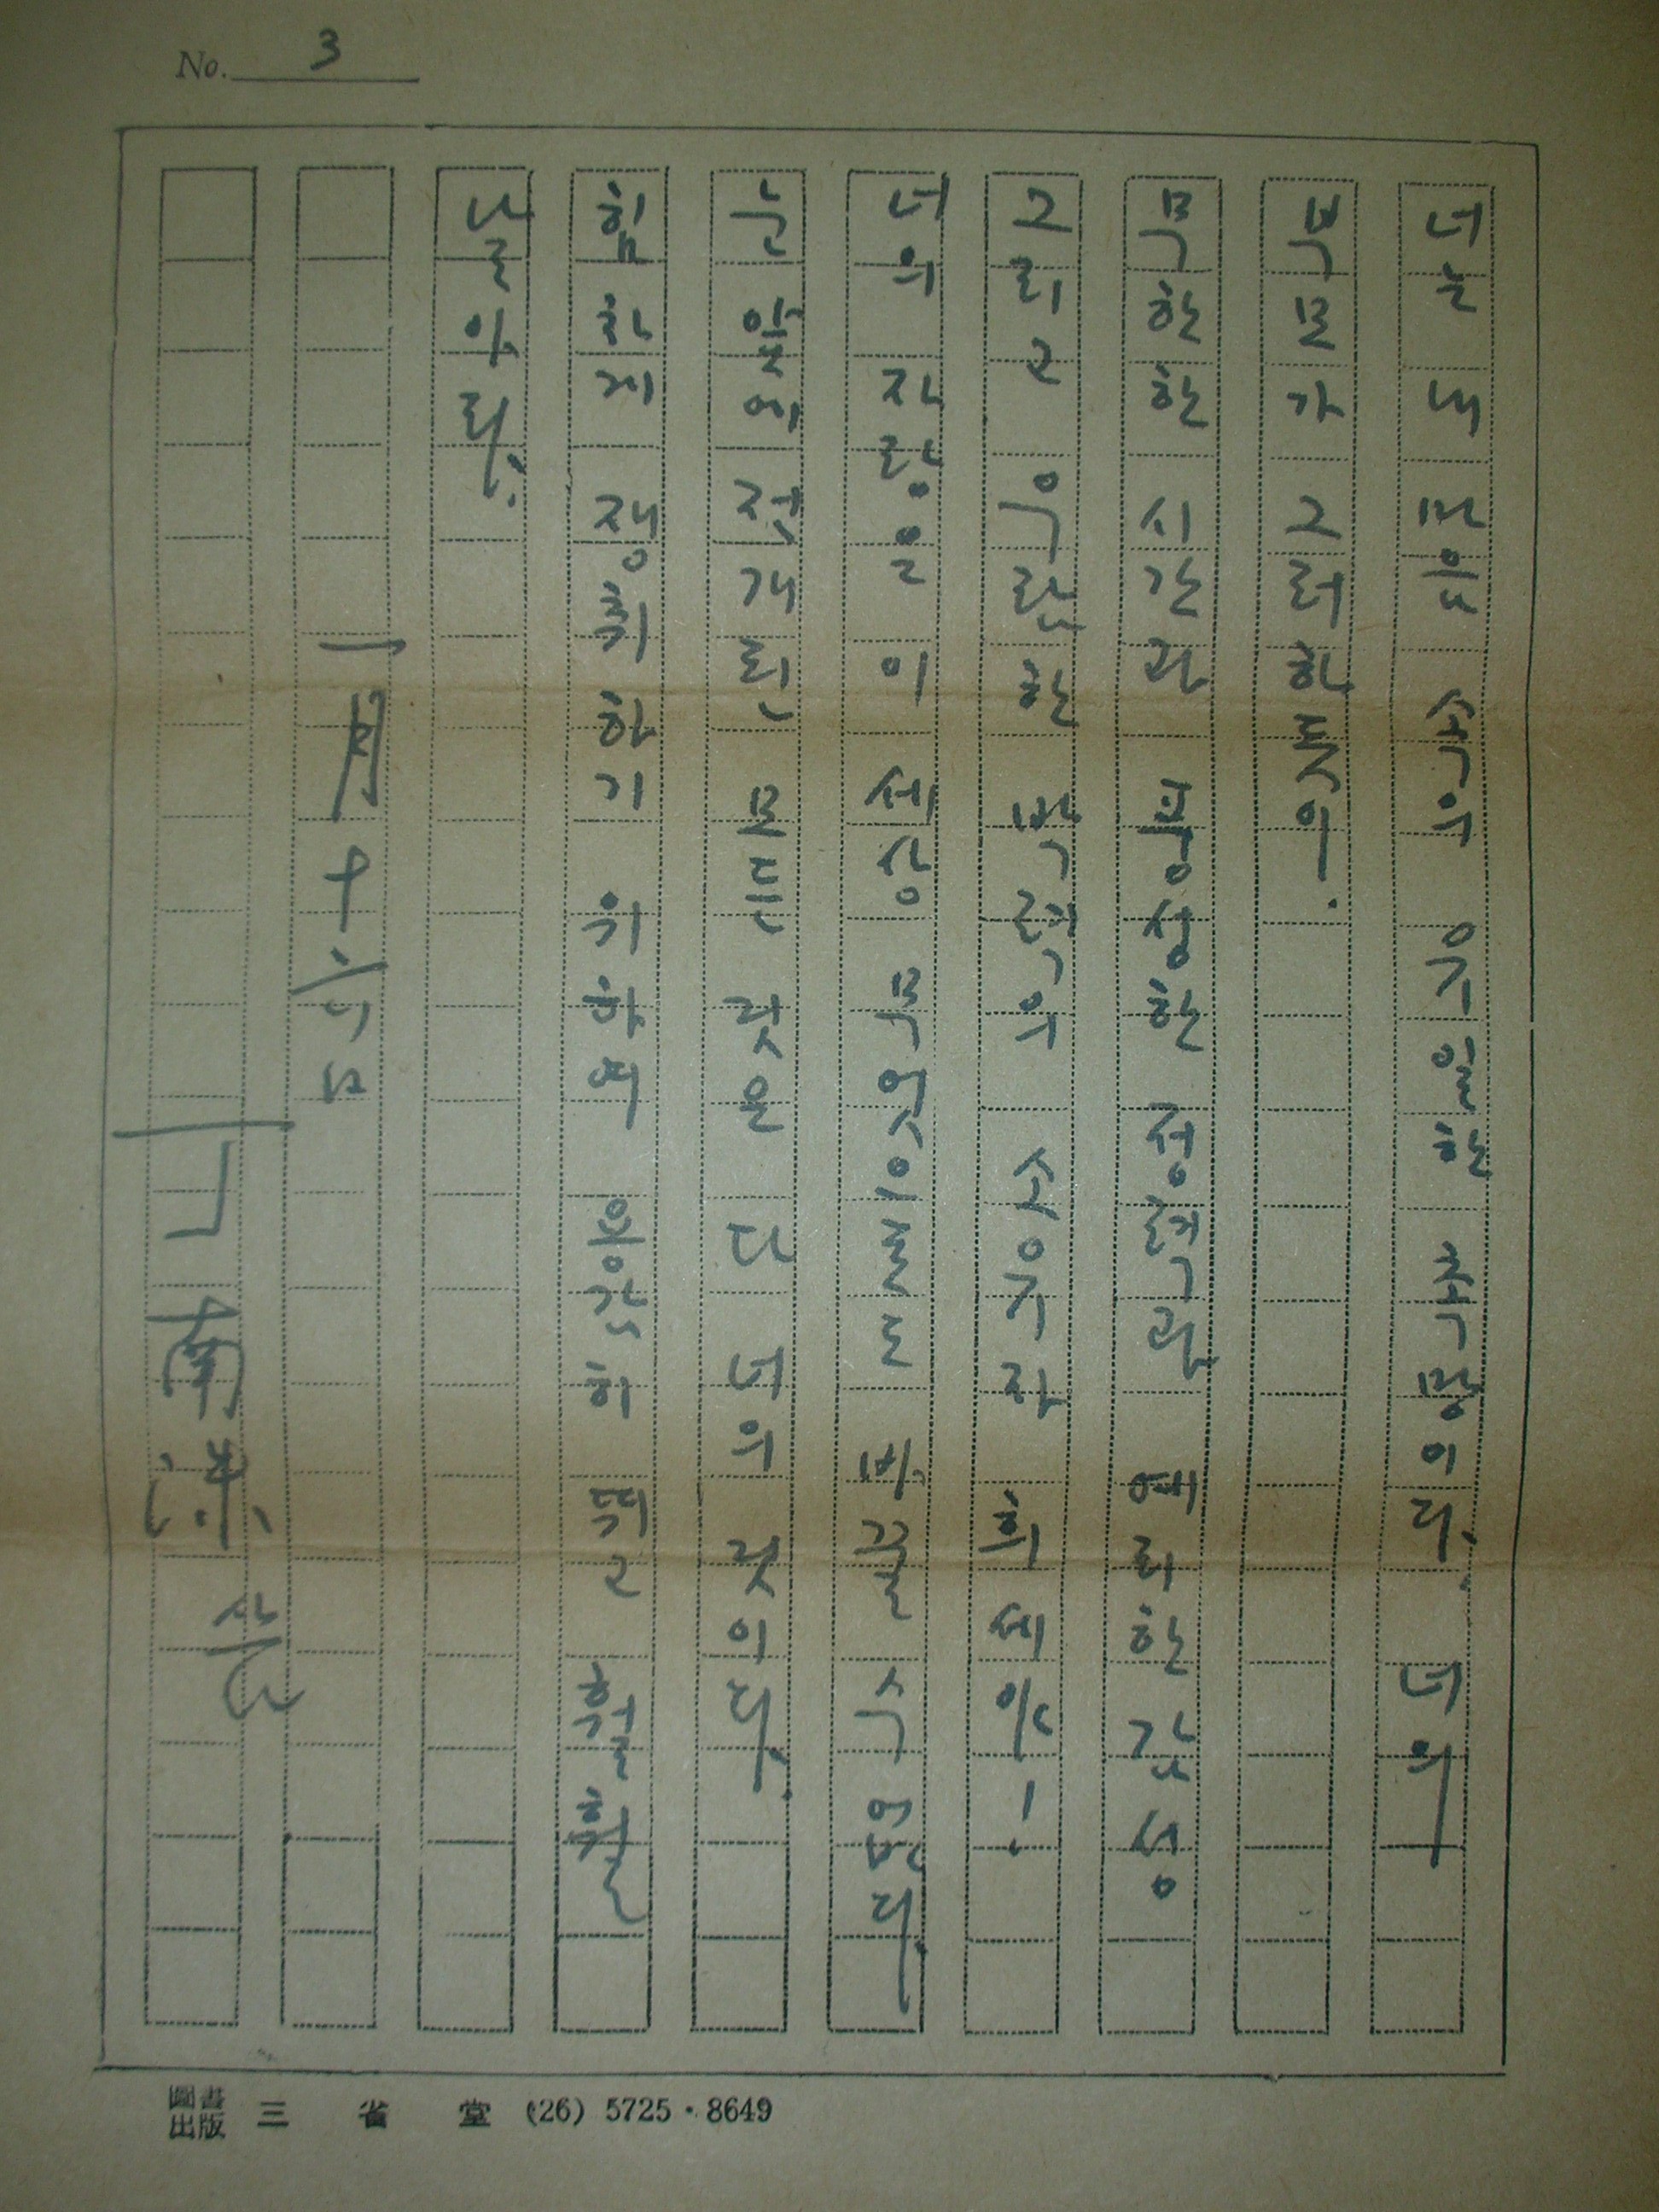 No. 3
너는 내 마음 속의 유일한 촉망이다. 너의
부모가 그러하듯이.
무한한 시간과 풍성한 정력과 예리한 감성
그리고 우람한 박력의 소유자 희세야!
너의 자랑은 이 세상 무엇으로도 바꿀 수 없다.
눈 앞에 전개된 모든 것은 다 너의 것이다.
힘차게 쟁취하기 위하여 용감히 뛰고 훨훨
날아라.
一月十六日
丁南洙 씀
圖書出版 三省堂 (26) 5725·8649